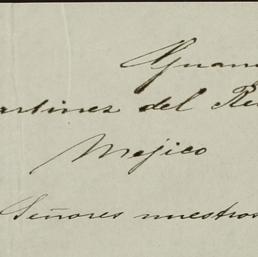 artinez del R
Mejico
Señores nuestros